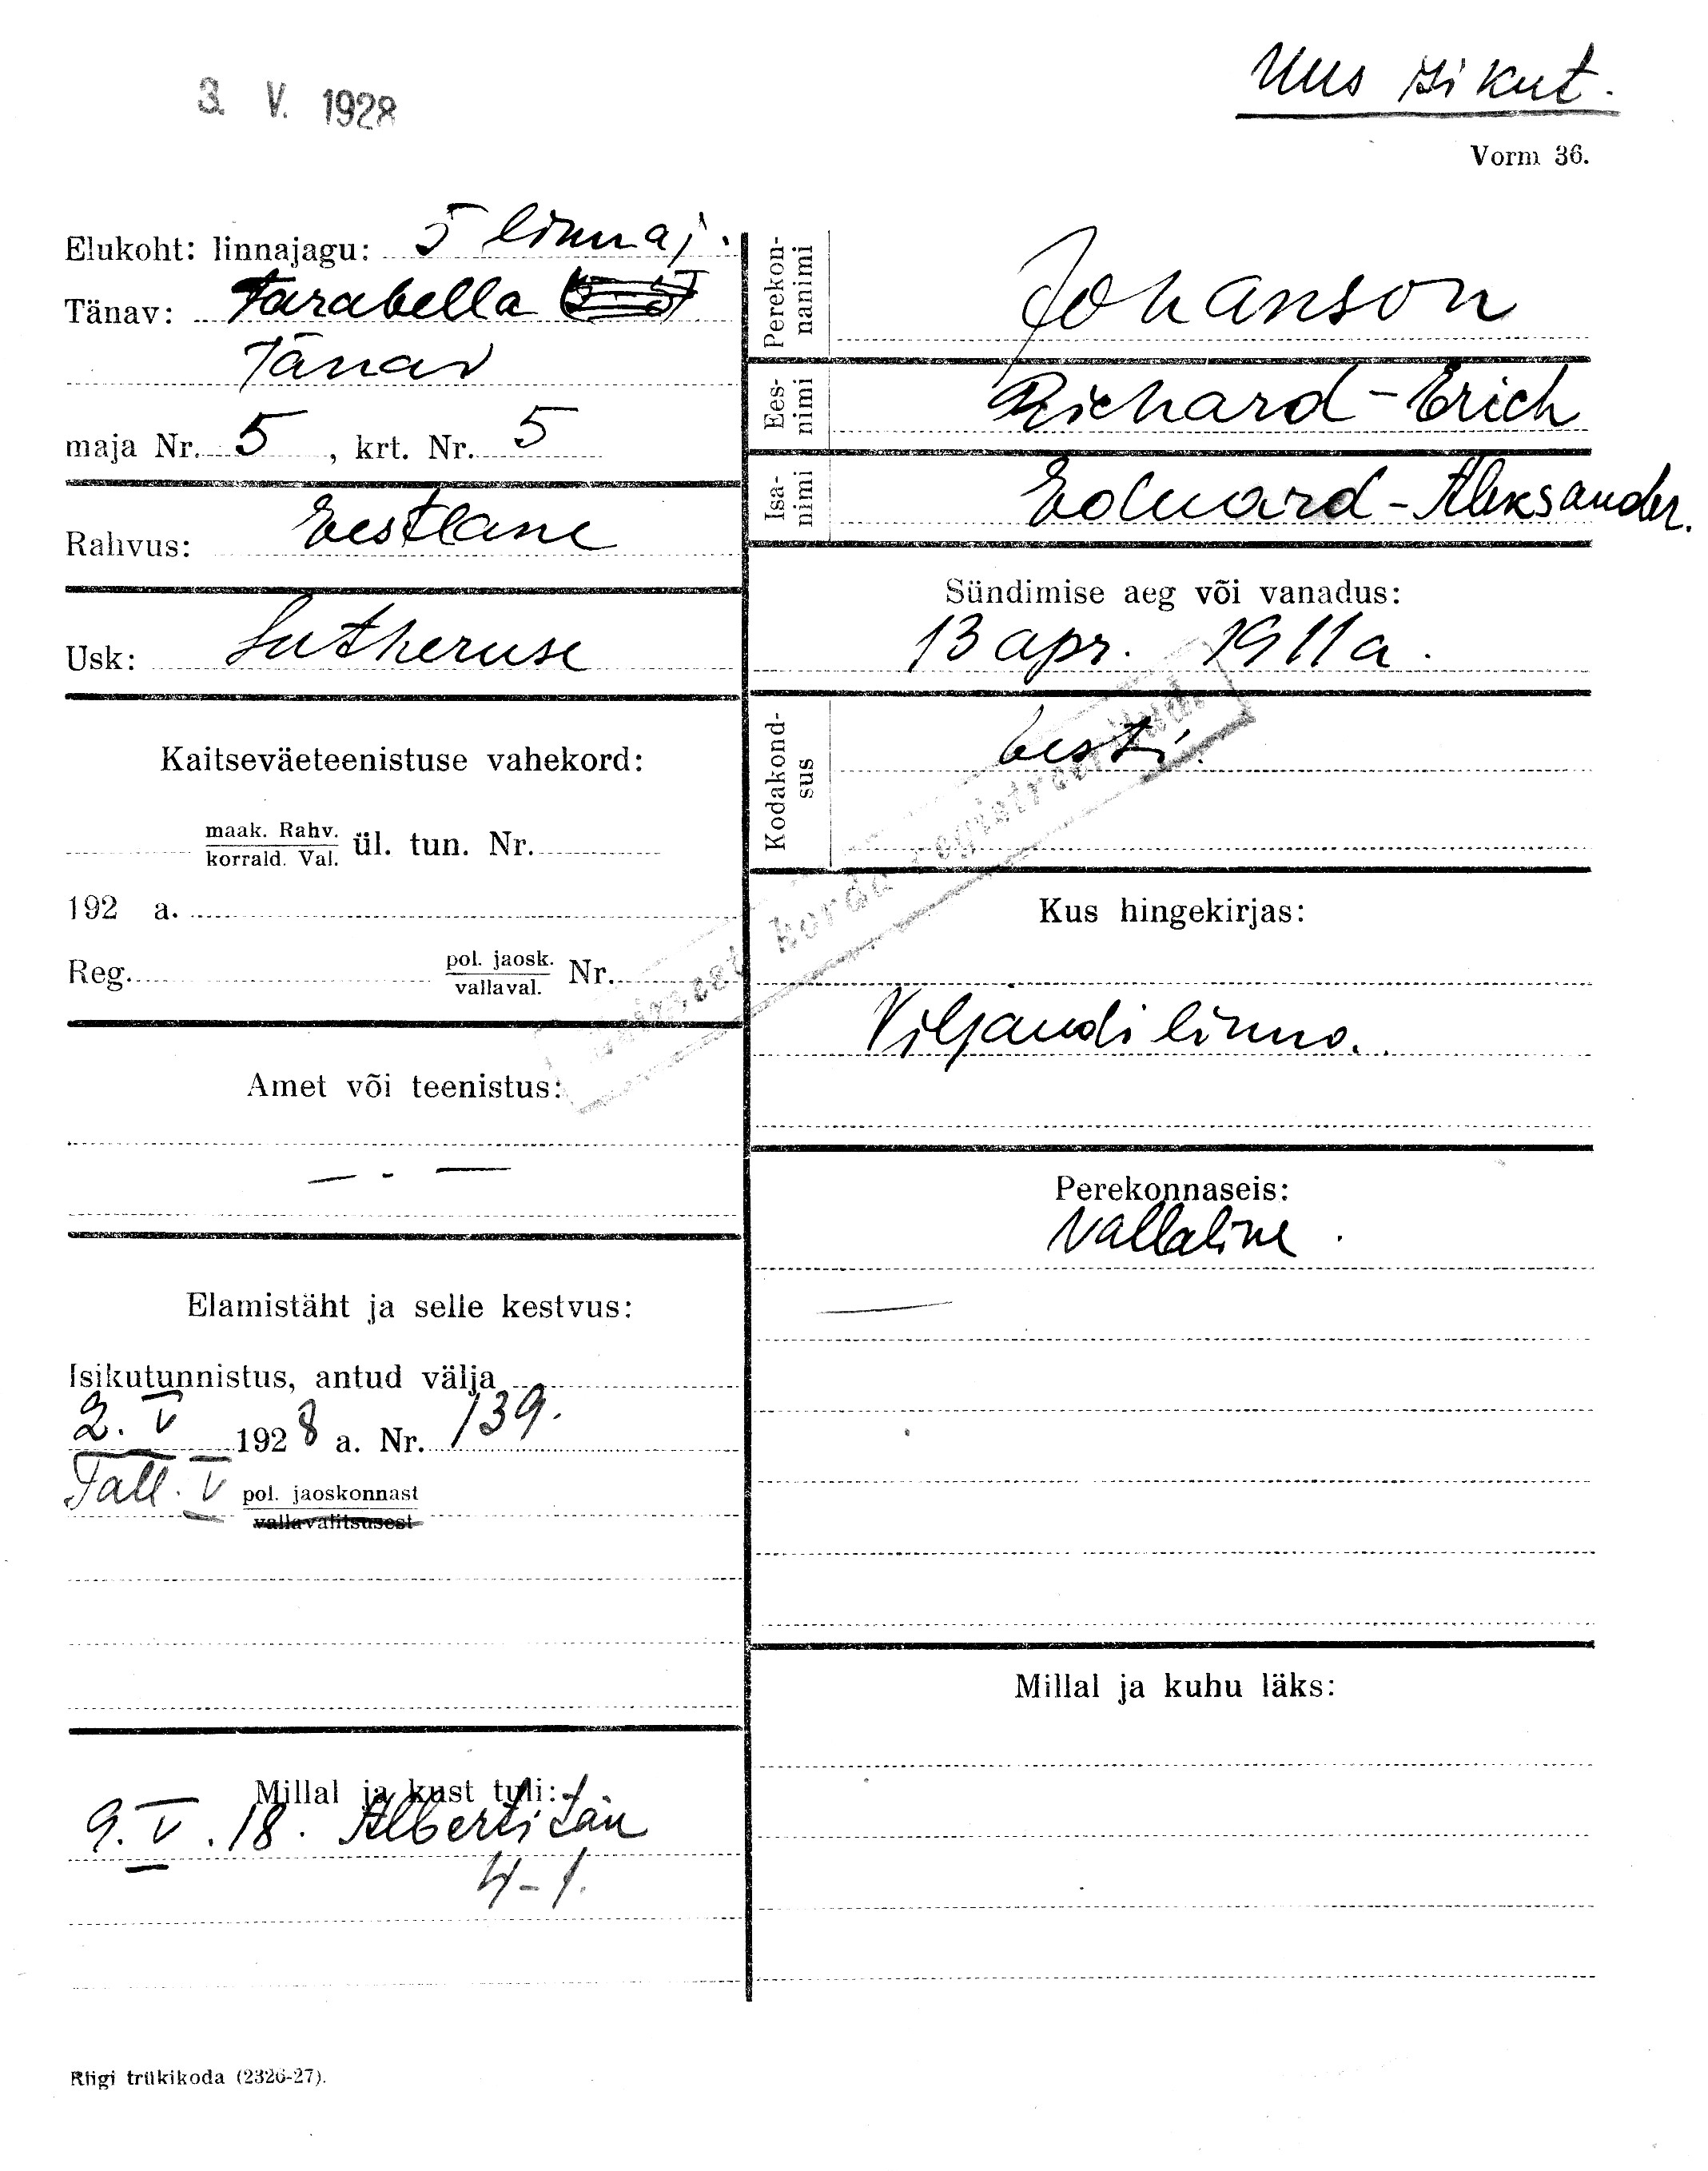 3. V. 1928
Uus isikut.
Vorm 36.
Elukoht: linnajagu: 5 linnaj.
Tänav: Parabella
Tänav
maja Nr. 5, krt. Nr. 5
Rahvus: Eestlane
Usk: Lutheruse
Kaitseväeteenistuse vahekord:
maak. Rahv.
korrald. Val. ül. tun. Nr.
192 a.
Reg. pol. jaosk.
vallaval. Nr.
Amet või teenistus:
— - —
Elamistäht ja selle kestvus:
Isikutunnistus, antud välja
2. V 1928 a. Nr. 139.
Tall. V pol. jaoskonnast
vallavalitsusest
Millal ja kust tuli:
9. V. 18. Alberti tän
4-1.
Perekonnanimi Johanson
Eesnimi Richard-Erich
Isanimi Eduard-Aleksander.
Sündimise aeg või vanadus:
13 apr. 1911 a.
Kodakondsus Eesti.
korda registreeritud.
Kus hingekirjas:
Viljandi linna.
Perekonnaseis:
Vallaline.
Millal ja kuhu läks:
Riigi trükikoda (2326-27).